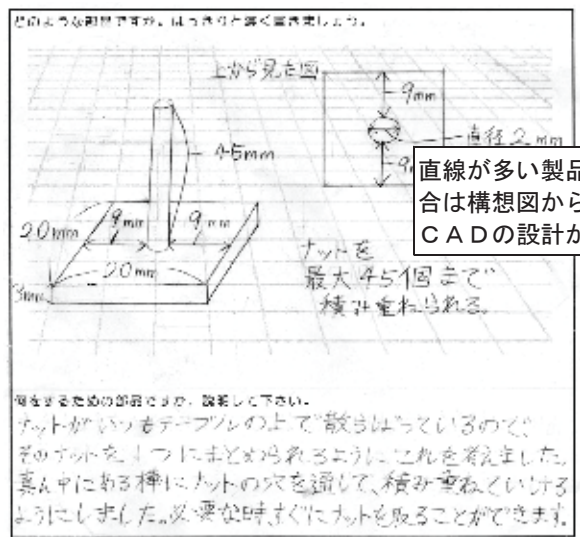 どのような部品ですか。はっきりと濃く書きましょう。
上から見た図
9mm
直径2mm
9
45mm
20mm
9mm
9mm
20mm
3mm
直線が多い製品
合は構想図から
CADの設計が
ナットを
最大45個まで
積み重ねられる。
何をするための部品ですか、説明して下さい。
ナットがいつもテーブルの上で散らばっているので、
そのナットを1つにまとめられるようにこれを考えました。
真ん中にある棒にナットの穴を通して、積み重ねていける
ようにしました。必要な時、すぐにナットを取ることができます。